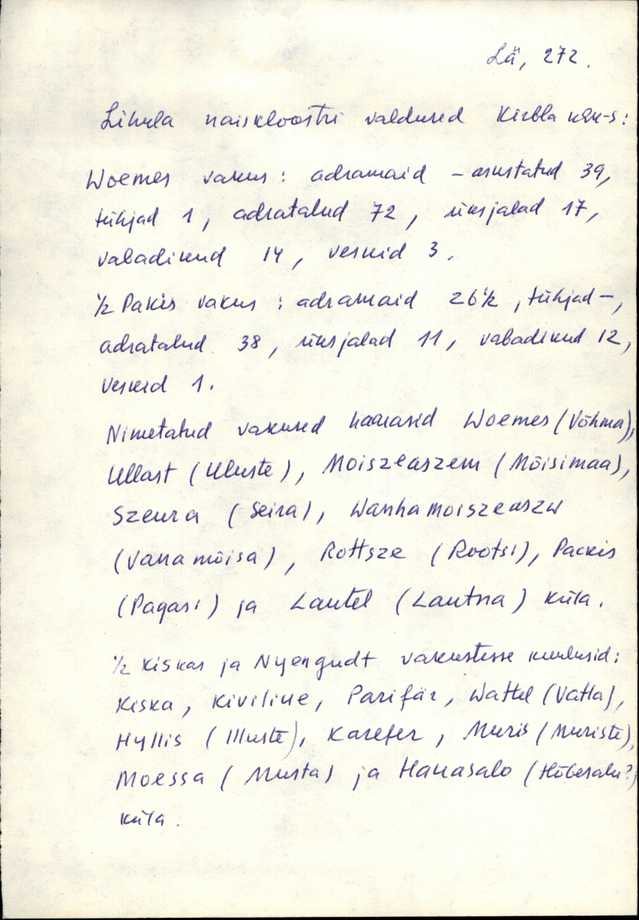 Lä, 272.
Lihula naiskloostri valdused Kirbla khk-s:
Woemes vakus: adramaid – asustatud 39,
tühjad 1, adratalud 72, üksjalad 17,
vabadikud 14, veskid 3.
1/2 Pakis vakus: adramaid 26 1/2, tühjad –,
adratalud 38, üksjalad 11, vabadikud 12,
veskid 1.
Nimetatud vakused haarasid Woemes (Võhma),
Ullast (Uluste), Moiszeaszem (Mõisimaa),
Szeura (Seira), Wanhamoiszeaszw
(Vanamõisa), Rottsze (Rootsi), Packis
(Pagasi) ja Lautel (Lautna) küla.
1/2 Kiskas ja Nyengudt vakustesse kuulusid:
Kiska, Kiviline, Parifär, Wattel (Vatla),
Hyllis (Illuste), Karefer, Muris (Muriste),
Moessa (Musta) ja Hauasalo (Hõbesalu?)
küla.